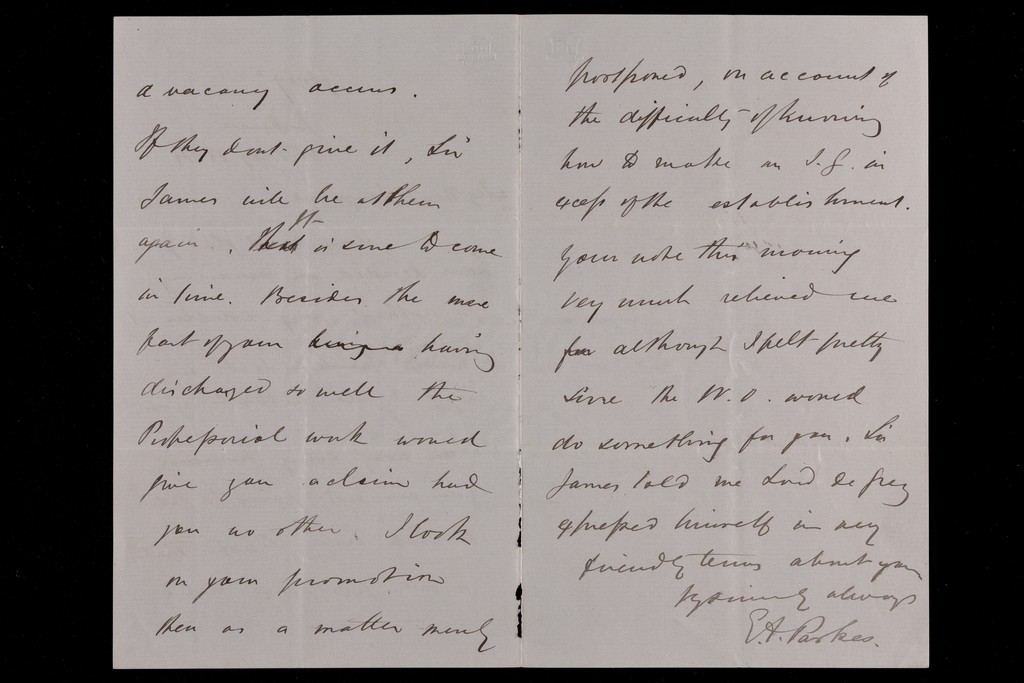 a vacancy occurs.
If they dont give it, Sir
James will be at them
again. It is sure to come
in time. Besides the mere
fact of your having
discharged so well the
Professorial work would
give you a claim had
you no other. I look
on your promotion
then as a matter merely
postponed, on account of
the difficulty of knowing
how to make an I.G. in
excess of the establishment.
Your note this morning
very much relieved me
for although I felt pretty
sure the W.O. would
do something for you. Sir
James told me Lord de Grey
expressed himself in very
friendly terms about you
Vy sincerely always
E.A. Parkes.